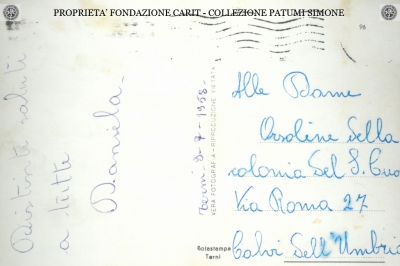 PROPRIETA' FONDAZIONE CARIT - COLLEZIONE PATUMI SIMONE
96
Distinti saluti
a tutte
Daniela.
Terni 3-7-1958.
VERA FOTOGRAFIA - RIPRODUZIONE VIETATA
Rotostampa
Terni
Alle Dame
Orsoline della
colonia del S. Cuo
Via Roma 27
Calvi Dell'Umbria